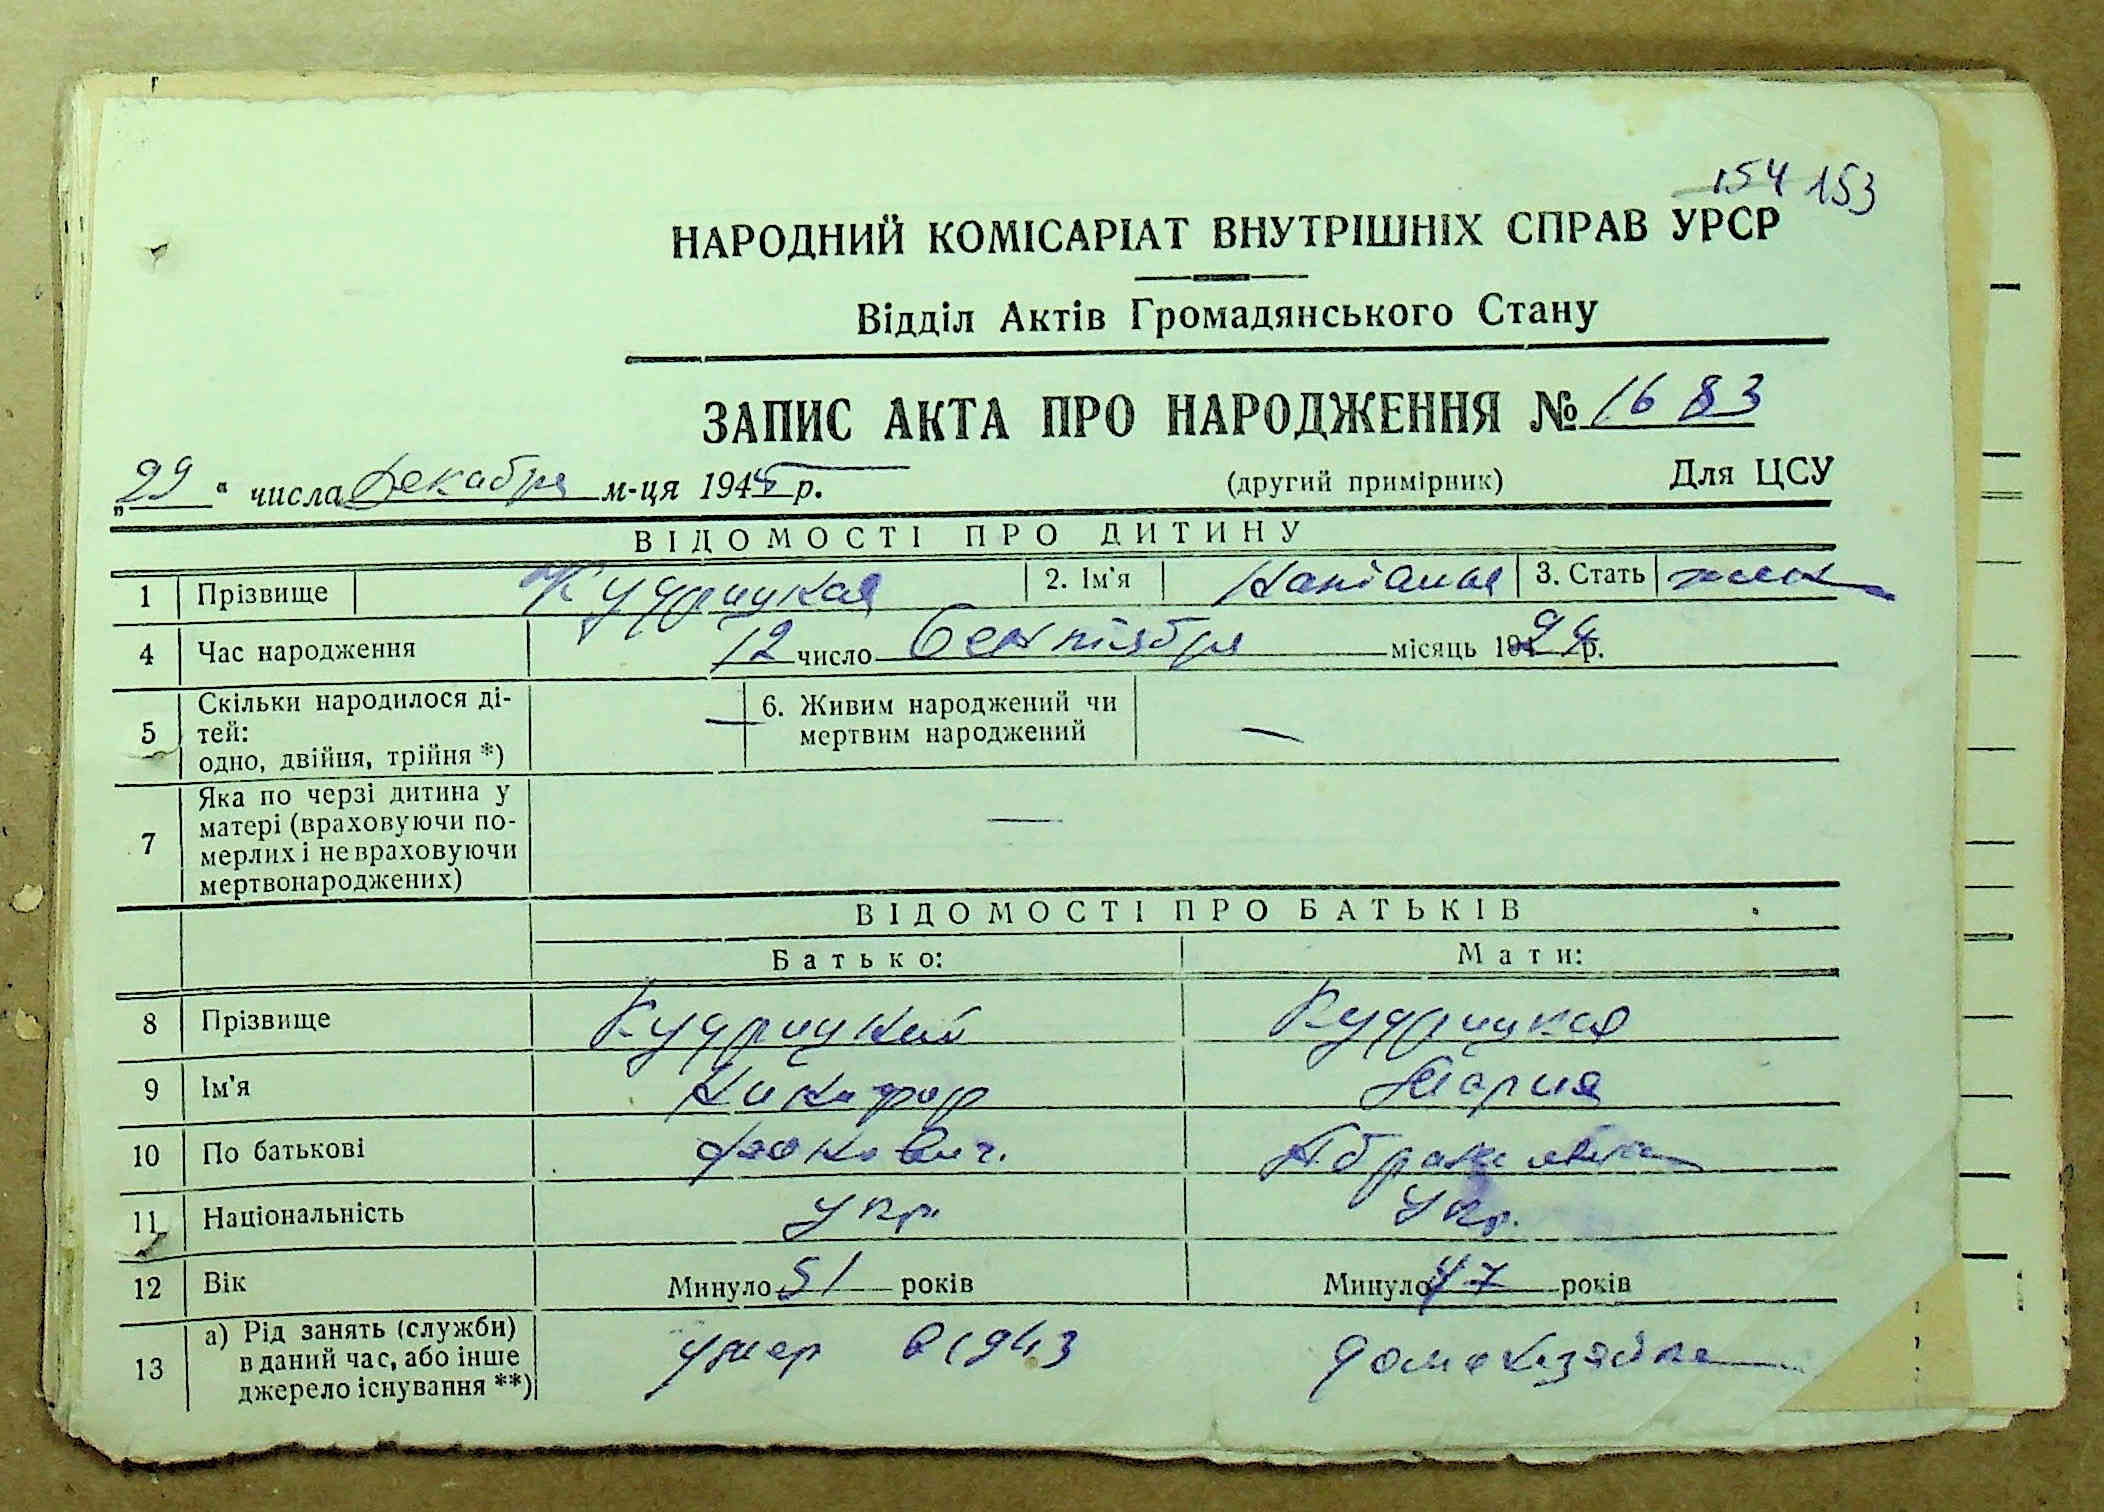 154 153
НАРОДНИЙ КОМІСАРІАТ ВНУТРІШНІХ СПРАВ УРСР
Відділ Актів Громадянського Стану
ЗАПИС АКТА ПРО НАРОДЖЕННЯ № 1683
„29“ числа Декабря м-ця 1945 р. (другий примірник) Для ЦСУ
ВІДОМОСТІ ПРО ДИТИНУ
1 Прізвище Кудрицкая 2. Ім'я 3. Стать жен
4 Час народження 12 число Сентября місяць 1929 р.
5 Скільки народилося ді-
тей:
одно, двійня, трійня *) — 6. Живим народжений чи
мертвим народжений —
7 Яка по черзі дитина у
матері (враховуючи по-
мерлих і не враховуючи
мертвонароджених) —
ВІДОМОСТІ ПРО БАТЬКІВ
Батько: Мати:
8 Прізвище Кудрицкий Кудрицкая
9 Ім'я Никифор Мария
10 По батькові
11 Національність укр. Укр.
12 Вік Минуло 51 років Минуло 47 років
13 а) Рід занять (служби)
в даний час, або інше
джерело існування **) умер в 1943 домохозяйка